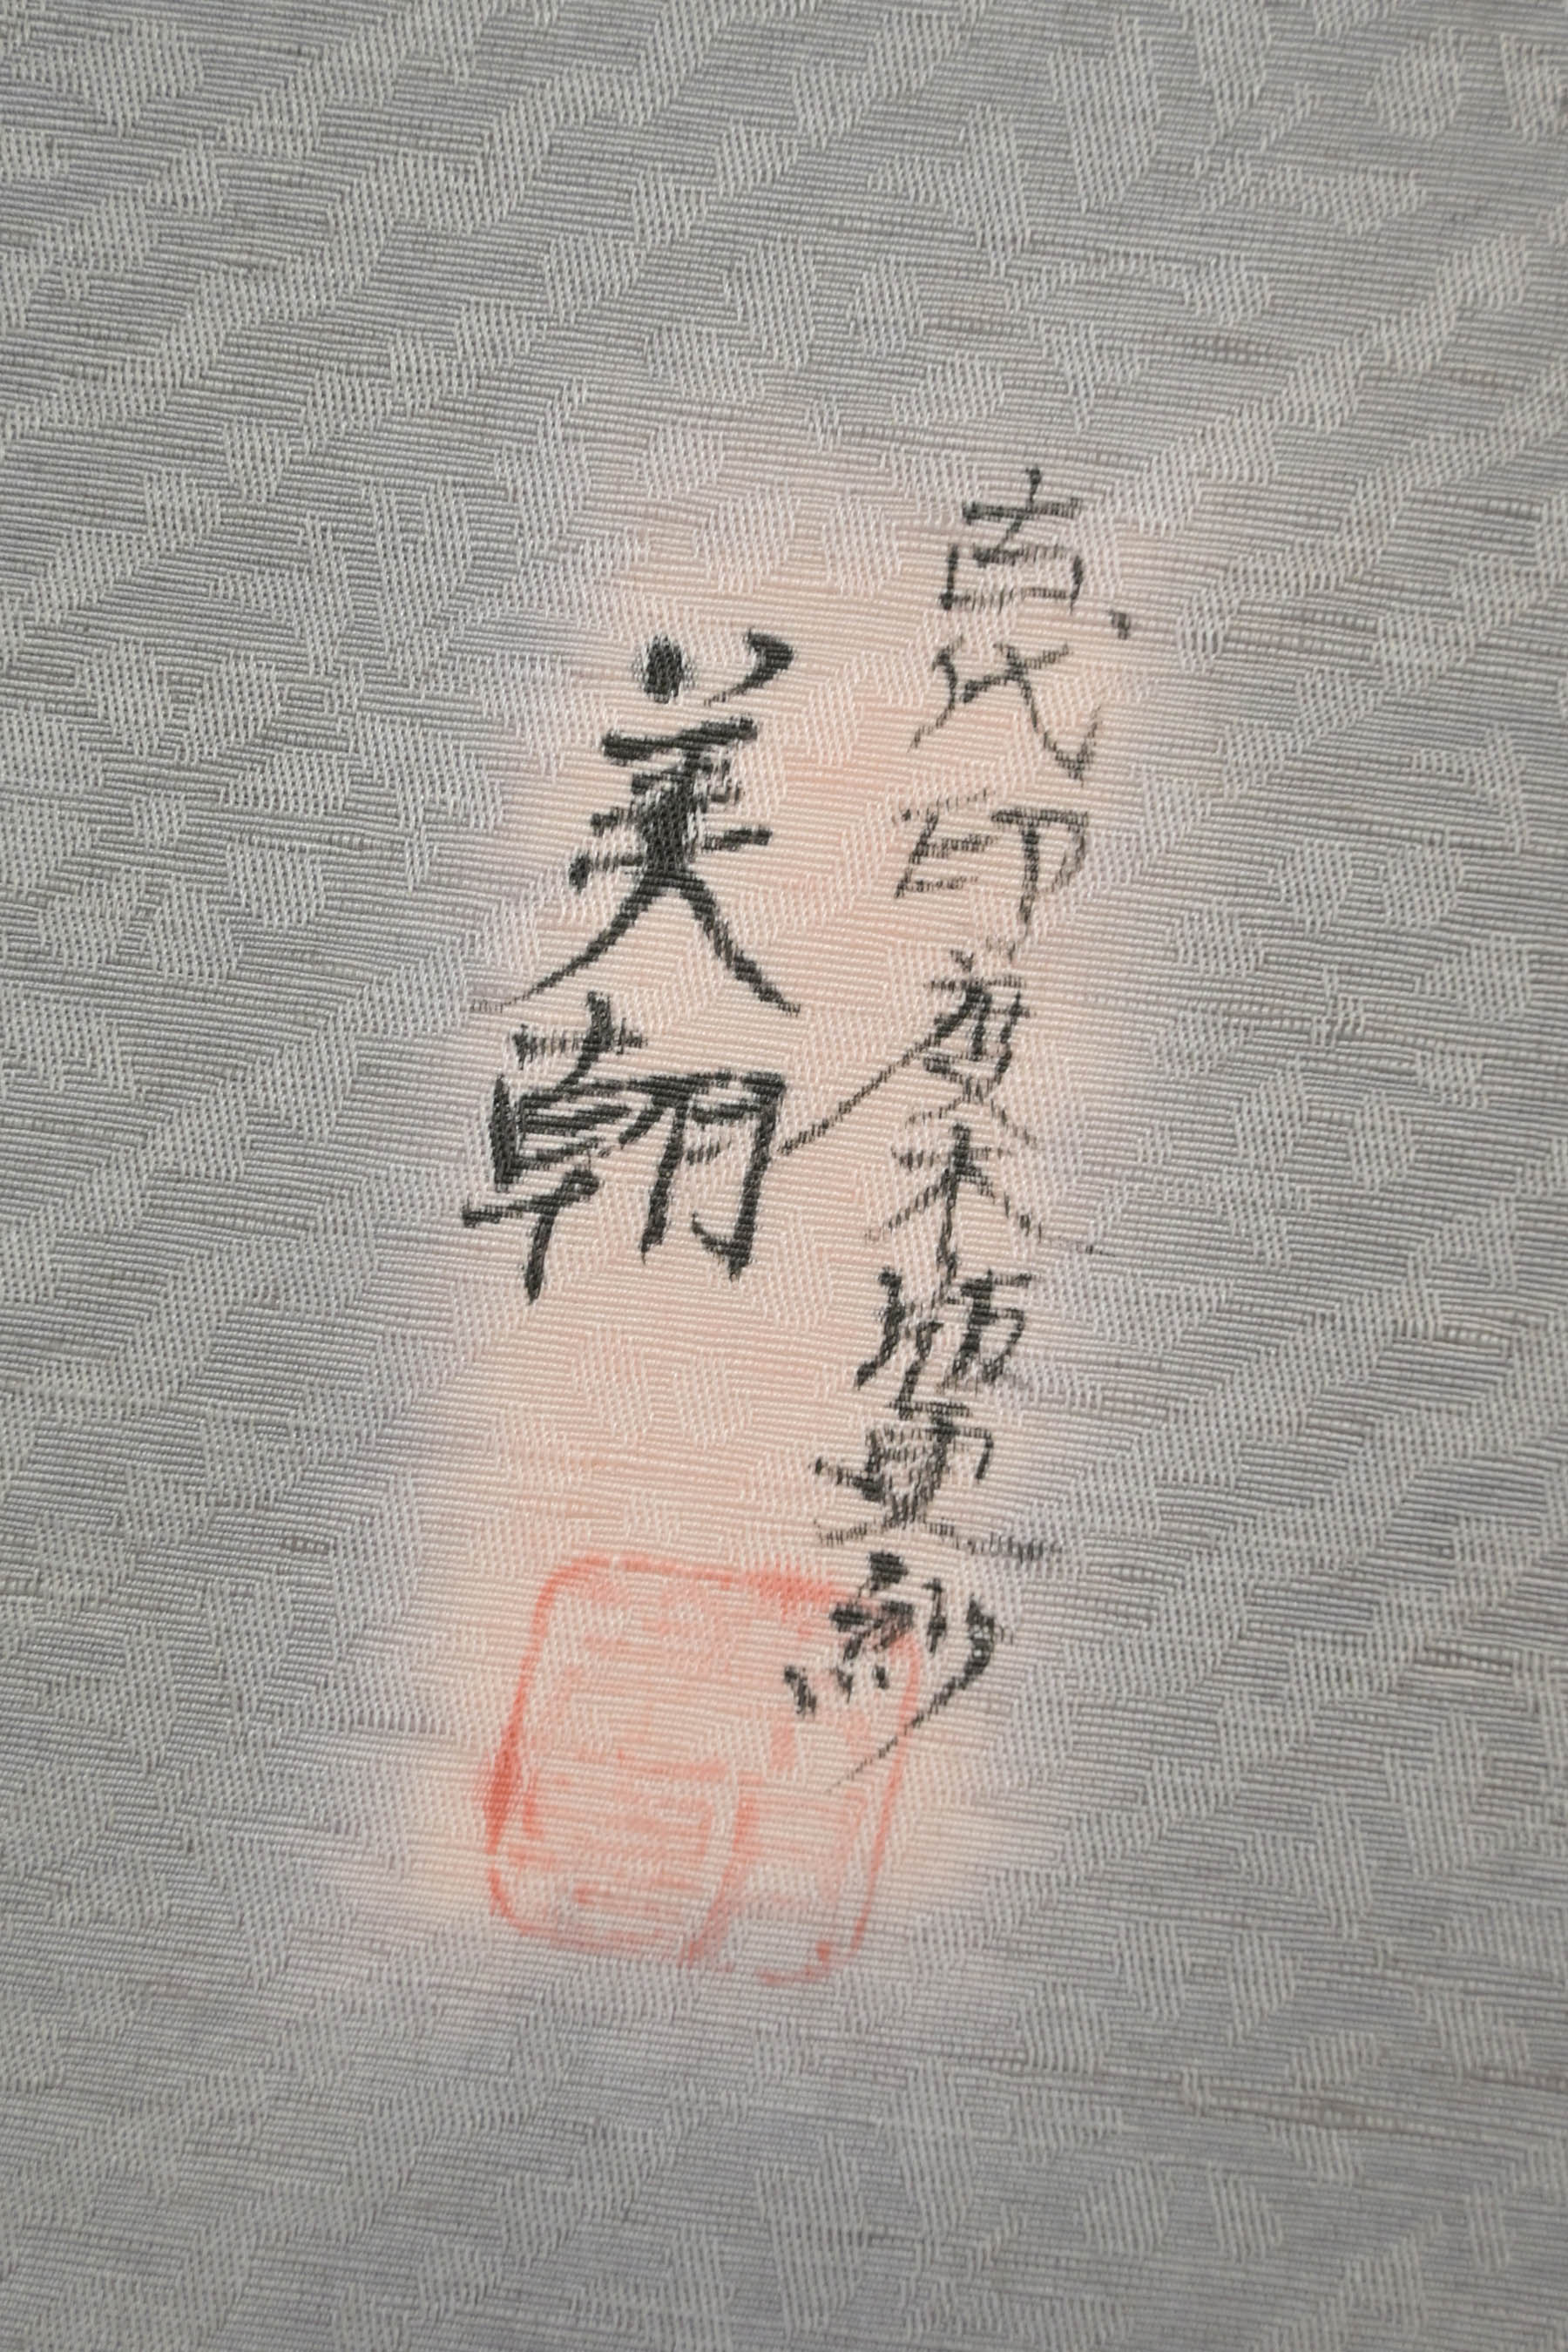 古代印度木版更紗
美朝